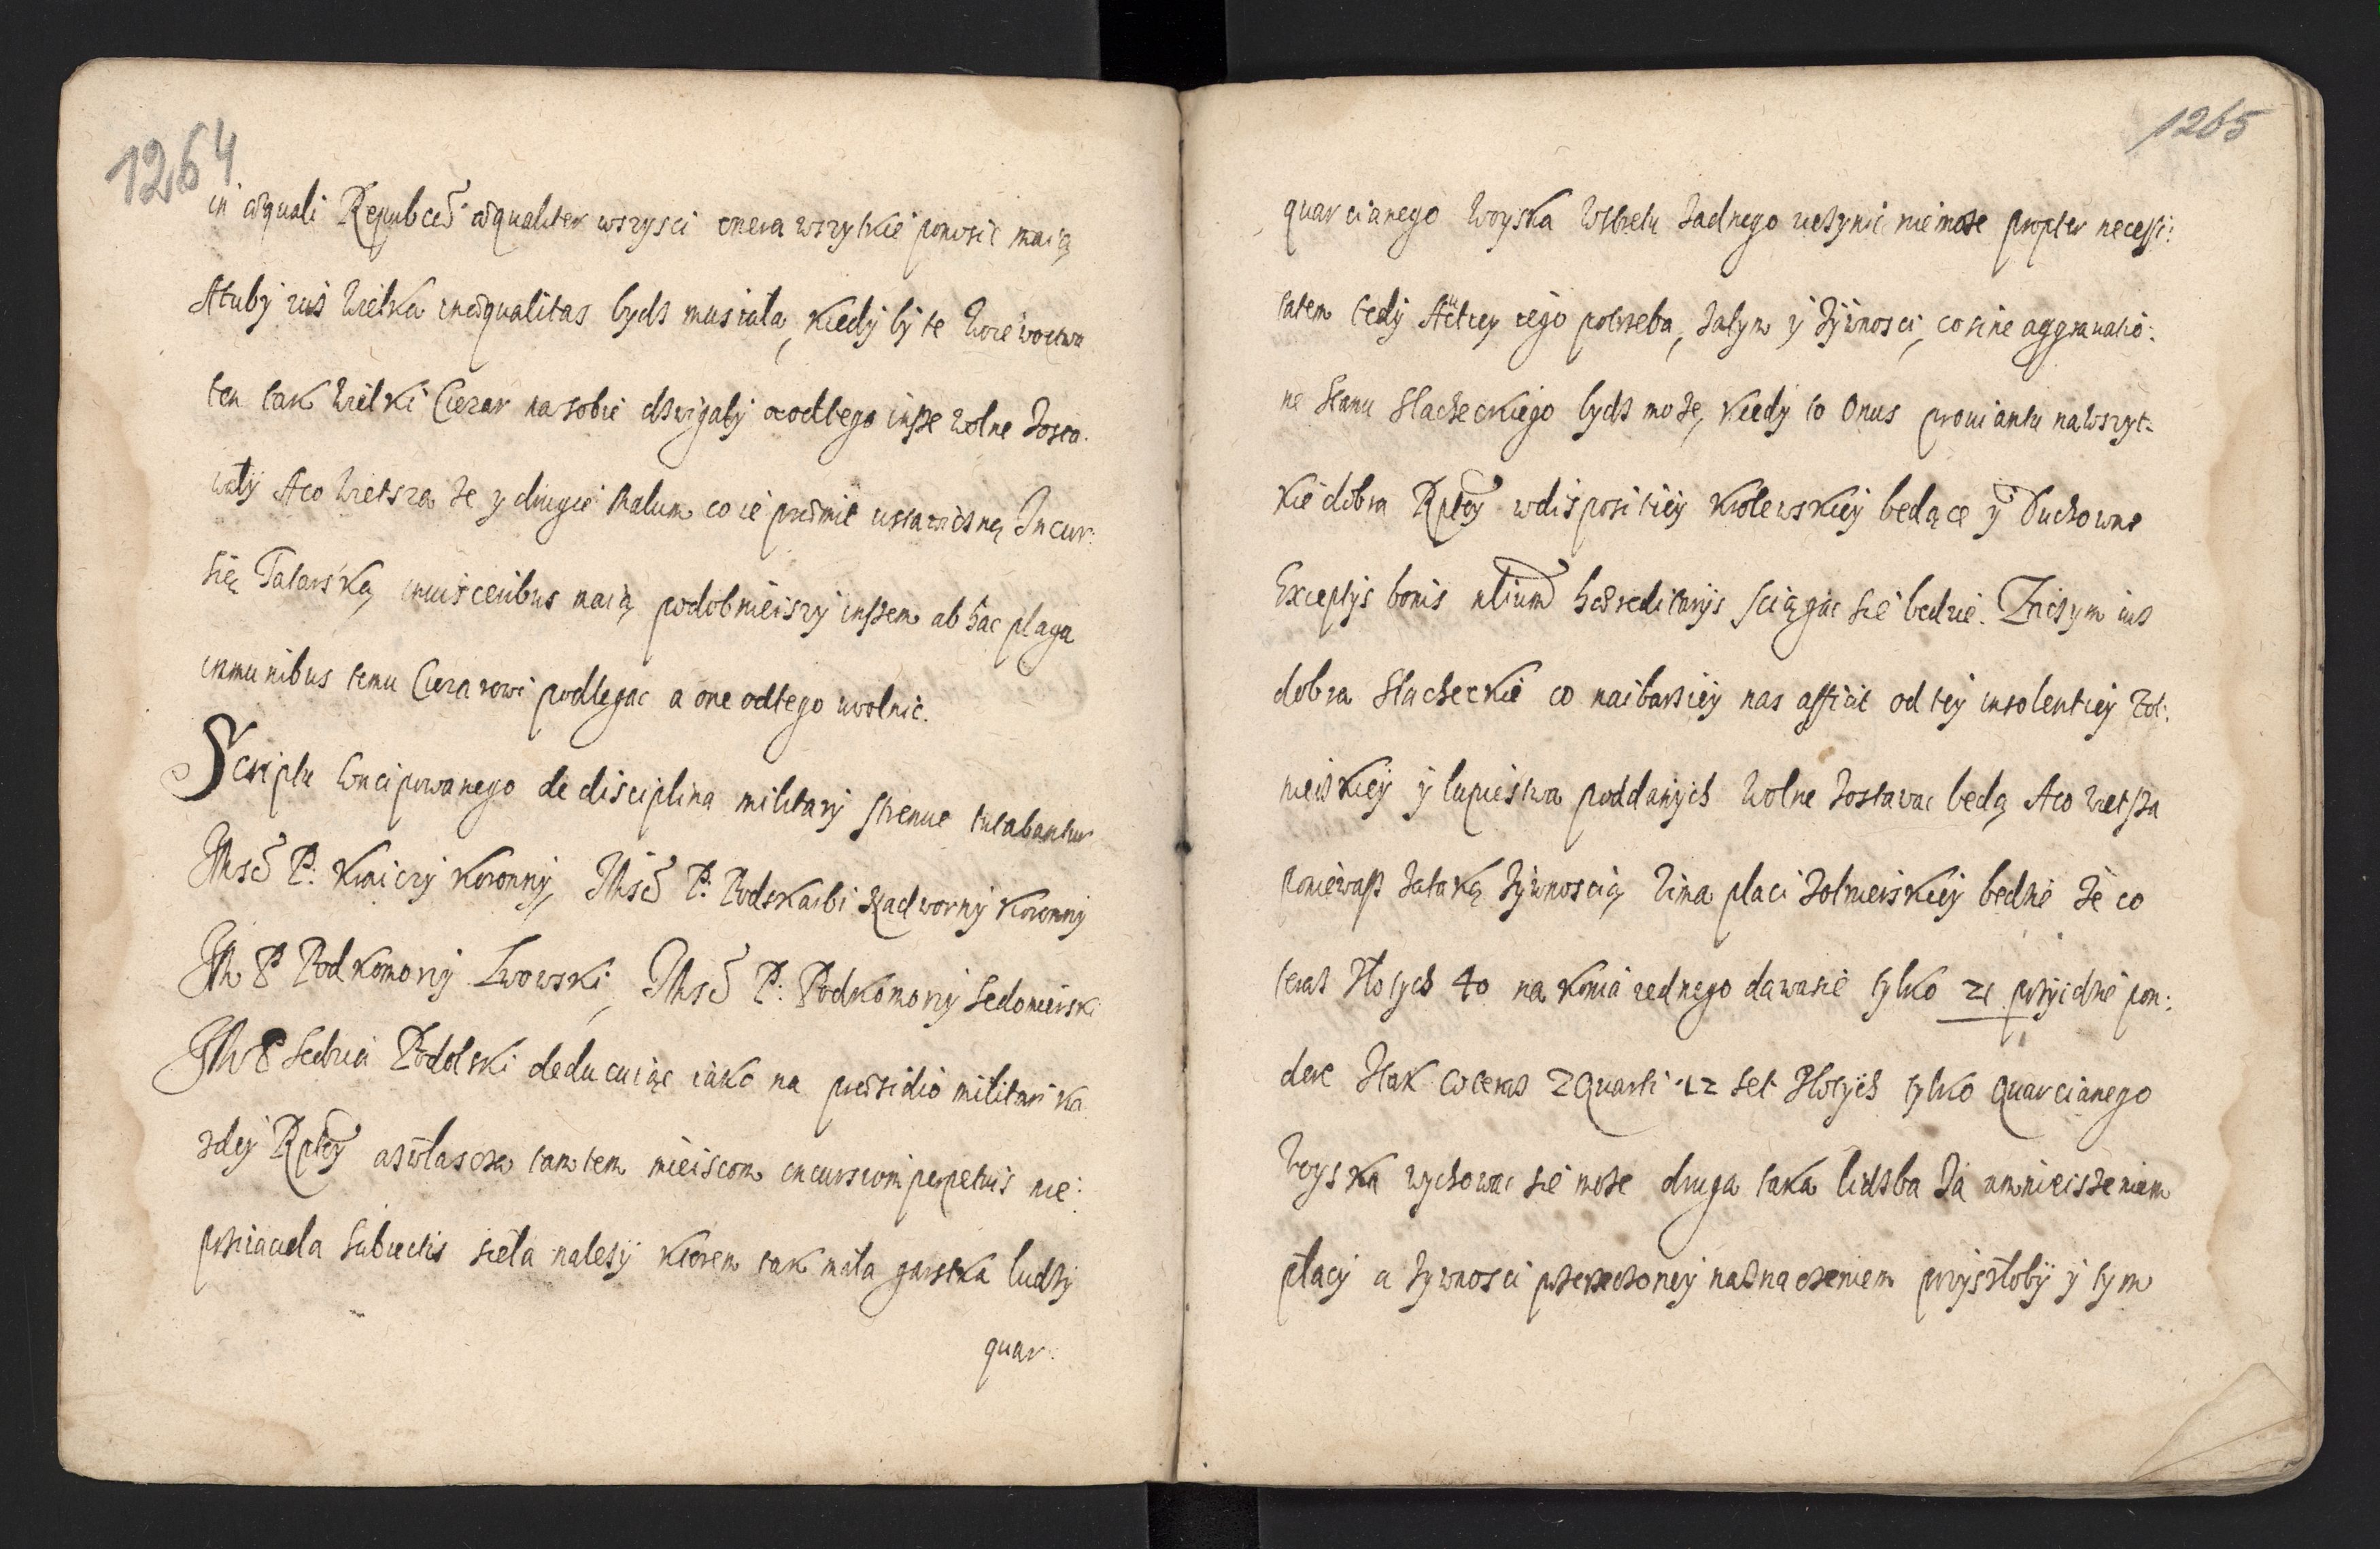 1264
in æquali Repubce æqualiter wszysci onera wszytkie ponosic maią
Atuby iuż wielka inæqualitas bydz musiała, kiedy by te woiewoctwa
ten tak wielki Cięzar na sobie dzwigały a od tego insze wolne zosta:
wały Aco wietsza ze y drugie malum co ie præmit ustawiczną Incur:
sią Tatarską inuisceribus maią podobnieiszy inszem ab hac plaga
immunibus temu Cięzarowi podlegac a one od tego uwolnic.
Scriptu Concipowanego de disciplina militari strenue tutabantur
JMsć P: Kraiczy Koronny, JMsć P: Podskarbi Nadworny Koronny
JM P Podkomorzy Lwowski, JMsć P: Podkomorzy Sedomierski
JM P Sedzia Podolski deducuiąc iako na præsidio militari ka
zdey Rptey azwłascza tamtem mieiscom incursioni perpetuis nie:
przyiaciela subiectis sieła nalezy ktorem tak mała garstka ludzy
quar:
1265
quarcianego woyska wstretu zadnego uczynic niemoze propter necessi:
tatem tedy Actiey iego potrzeba, zatym y zywnosci, co sine aggrauatio:
ne Stanu Slacheckiego bydz moze, kiedy to Onus prouiantu na wszyt:
kie dobra Rptey w dispositiey Krolewskiey bedące y Duchowne
Exceptys bonis ntium hæreditarys sciągac sie bedzie. Zniszym iuz
dobra Slacheckie co naibarziey nas afficit od tey insolentiey zoł:
nierskiey y łupiestwa poddanych wolne zostawac bedą Aco wietsza
poniewasz zataką zywnoscią zima płaci zołnierskiey bedzie ze co
teraz złotych 40 na konia iednego dawasie tylko 21 przyidzie pon:
dere Itak co teraz z Quarti 12 set złotych tylko quarcianego
woyska wychowac sie moze druga taka liczba za umnieiszeniem
płacy a zywnosci przerzeczoney naznaczeniem przyszłoby y tym